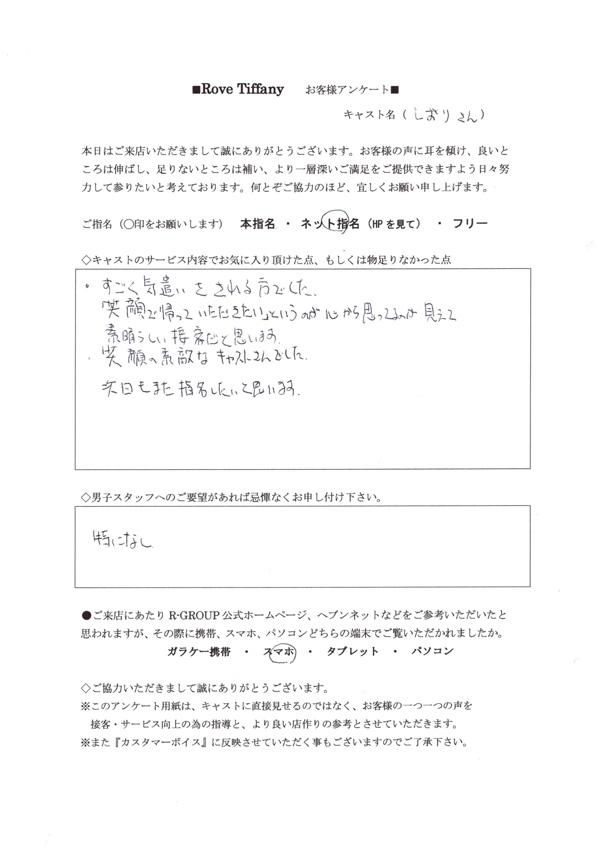 ■Rove Tiffany お客様アンケート■
キャスト名（ しおり さん ）
本日はご来店いただきまして誠にありがとうございます。お客様の声に耳を傾け、良いと
ころは伸ばし、足りないところは補い、より一層深いご満足をご提供できますよう日々努
力して参りたいと考えております。何とぞご協力のほど、宜しくお願い申し上げます。
ご指名（〇印をお願いします） 本指名 ・ ネット指名（HPを見て） ・ フリー
◇キャストのサービス内容でお気に入り頂けた点、もしくは物足りなかった点
・ すごく気遣いをされる方でした。
「笑顔で帰っていただきたい」というのが心から思ってるのが見えて
素晴らしい接客だと思います。
・ 笑顔の素敵なキャストさんでした。
次回もまた指名したいと思います。
◇男子スタッフへのご要望があれば忌憚なくお申し付け下さい。
特になし
●ご来店にあたり R-GROUP公式ホームページ、ヘブンネットなどをご参考いただいたと
思われますが、その際に携帯、スマホ、パソコンどちらの端末でご覧いただかれましたか。
ガラケー携帯 ・ スマホ ・ タブレット ・ パソコン
◇ご協力いただきまして誠にありがとうございます。
※このアンケート用紙は、キャストに直接見せるのではなく、お客様の一つ一つの声を
接客・サービス向上の為の指導と、より良い店作りの参考とさせていただきます。
※また『カスタマーボイス』に反映させていただく事もございますのでご了承下さい。